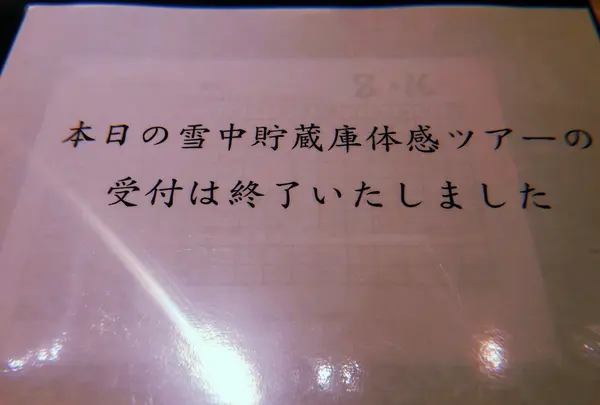 本日の雪中貯蔵庫体感ツアーの
受付は終了いたしました